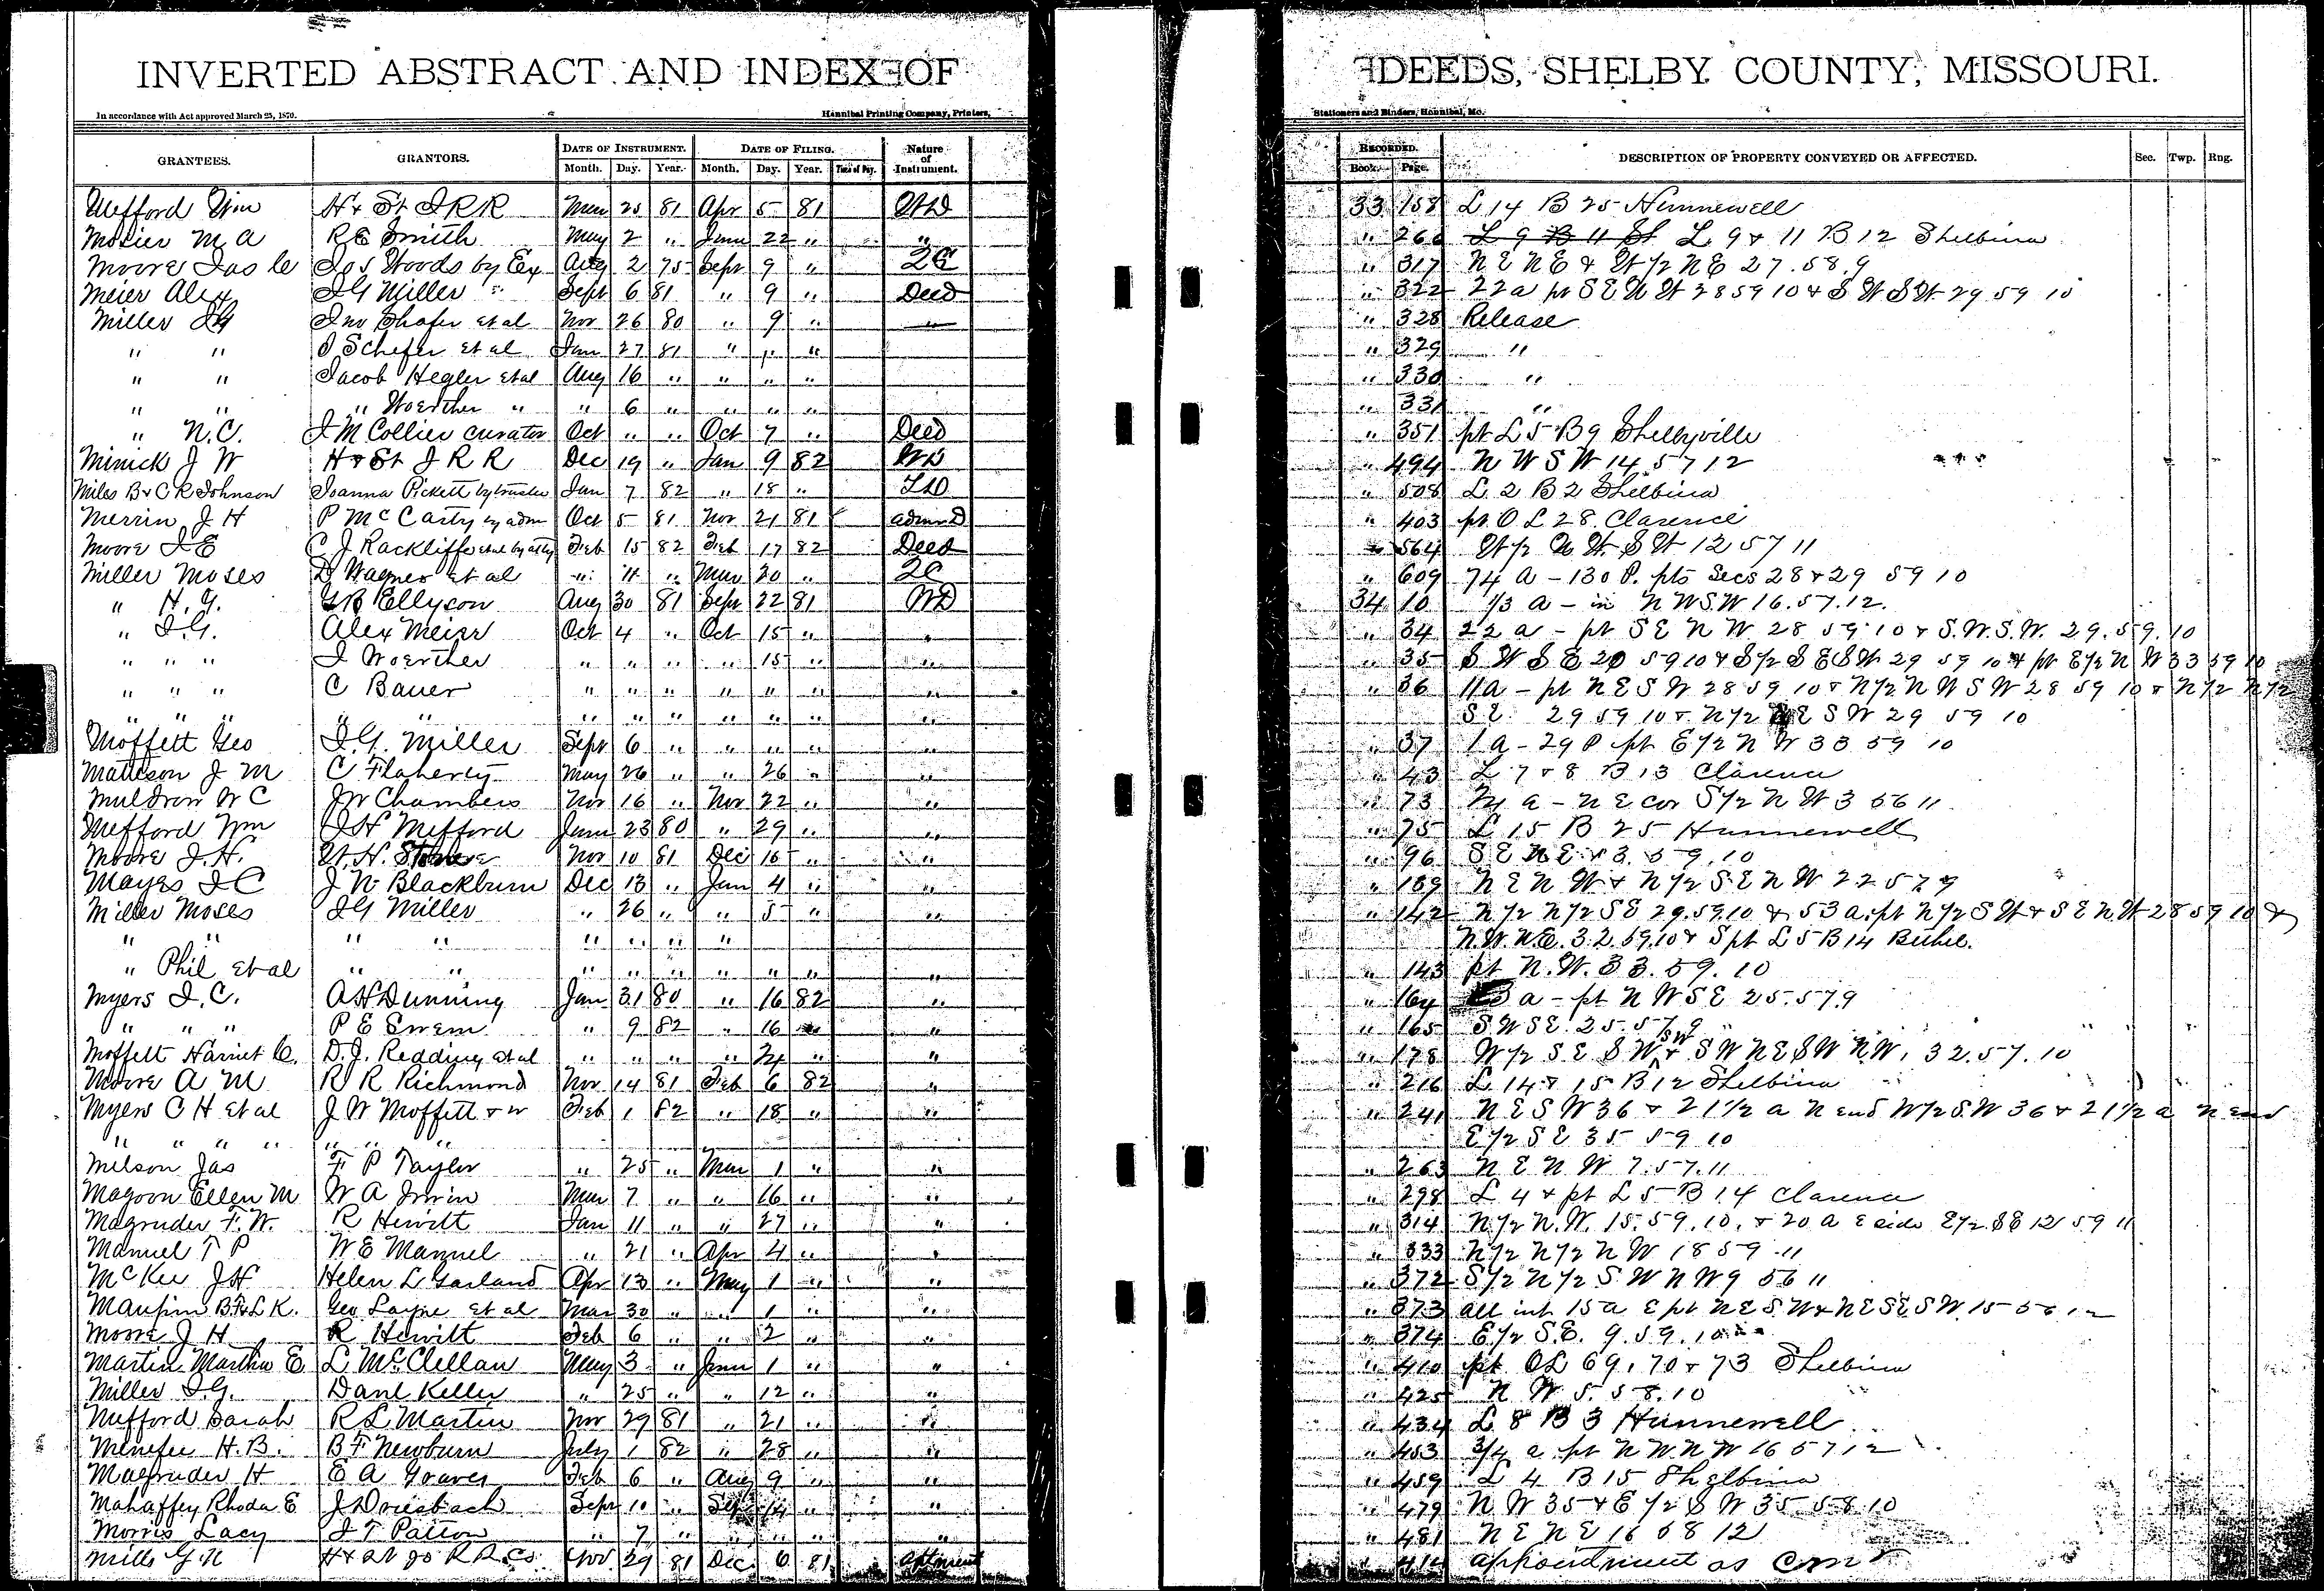 INVERTED ABSTRACT AND INDEX OF DEEDS, SHELBY COUNTY, MISSOURI.
In accordance with Act approved March 25, 1870. Hannibal Printing Company, Printers, Stationers and Binders, Hannibal, Mo.
GRANTEES. GRANTORS. DATE OF INSTRUMENT. DATE OF FILING. Nature of Instrument. RECORDED. DESCRIPTION OF PROPERTY CONVEYED OR AFFECTED. Sec. Twp. Rng.
Month. Day. Year. Month. Day. Year. Time of Day. Book. Page.
Mefford Wm H & St J R R Mar 25 81 Apr 5 81 WD 33 158 L 14 B 25 Hunnewell
Mosier M A R E Smith May 2 " June 22 " " " 266 L 9 B 11 St L 9 & 11 B 12 Shelbina
Moore Jas C Jos Woods by Ex Aug 2 75 Sept 9 " QC " 317 N E N E & W 1/2 N E 27.58.9
Meier Alex J G Miller " Sept 6 81 " 9 " Deed " 322 22 a pt S E N W 28 59 10 & S W S W 29 59 10
Miller J G Jno Shafer et al Nov 26 80 " 9 " " 328 Release
" " J Schefer et al Jan 27 81 " " " " 329 "
" " Jacob Hegler et al Aug 16 " " " " " 330 "
" " " Woerther " " 6 " " " " " 331 "
" N.C. J M Collier curator Oct " " Oct 7 " Deed " 351 pt L 5 B 9 Shelbyville
Minick J W H & St J R R Dec 19 " Jan 9 82 WD " 494 N W S W 14 57 12
Miles B & C R Johnson Joanna Pickett by trustee Jan 7 82 " 18 " TD " 508 L 2 B 2 Shelbina
Merrin J H P McCarty by adm Oct 5 81 Nov 21 81 admr D " 403 pt O L 28 Clarence
Moore J E C J Rackliffe et al by atty Feb 15 82 Feb 17 82 Deed " 564 W 1/2 N W S W 12 57 11
Miller Moses D Wagner et al " 11 " Mar 20 " QC " 609 74 a - 130 P. pts Secs 28 & 29 59 10
" H. G. G B Ellyson Aug 30 81 Sept 22 81 WD 34 10 1/3 a - in N W S W 16.57.12.
" J.G. Alex Meier Oct 4 " Oct 15 " " " 34 22 a - pt S E N W 28 59 10 & S.W.S.W. 29.59.10
" " " J Woerther " " " " 15 " " " 35 S W S E 20 59 10 & S 1/2 S E S W 29 59 10 & pt E 1/2 N W 33 59 10
" " " C Bauer " " " " " " " " 36 11 a - pt N E S W 28 59 10 & N 1/2 N W S W 28 59 10 & N 1/2 N 1/2
" " " " " " " " " " " " S E 29 59 10 & N 1/2 N E S W 29 59 10
Moffett Geo J. G. Miller Sept 6 " " " " " " 37 1 a - 29 P pt E 1/2 N W 33 59 10
Matteson J M C Flaherty May 26 " " 26 " " " 43 L 7 & 8 B 13 Clarence
Muldrow W C J W Chambers Nov 16 " Nov 22 " " " 73 a - N E cor S 1/2 N W 3 56 11
Mefford Wm J H Mefford June 23 80 " 29 " " " 75 L 15 B 25 Hunnewell
Moore J. H. W. H. Nov 10 81 Dec 15 " " " 96 S E N E 3.59.10
Mayes J C J N Blackburn Dec 13 " Jan 4 " " " 139 N E N W & N 1/2 S E N W 22 57 9
Miller Moses J G Miller " 26 " " 5 " " " 142 N 1/2 N 1/2 S E 29.59.10 & 53 a. pt N 1/2 S W & S E N W 28 59 10 &
" " " " " " " " N.W.N.E. 32.59.10 & S pt L 5 B 14 Bethel.
" Phil et al " " " " " " " " " " 143 pt N.W. 33.59.10
Myers J. C. A H Dunning Jan 31 80 " 16 82 " " 164 a - pt N W S E 25.57.9
" " " P E Swem " 9 82 " 16 " " " 165 S W S E 25.57.9
Moffett Harriet C. D. J. Redding et al " " " " 24 " " " 178 W 1/2 S E S W & SW S W N E S W N W, 32.57.10
Moore A M R R Richmond Nov 14 81 Feb 6 82 " " 216 L 14 & 15 B 12 Shelbina
Myers C H et al J W Moffett & w Feb 1 82 " 18 " " " 241 N E S W 36 & 21 1/2 a N end W 1/2 S W 36 & 21 1/2 a N end
" " " " " " " E 1/2 S E 35 59 10
Melson Jas F P Taylor " 25 " Mar 1 " " " 263 N E N W 7.57.11
Magoon Ellen M W A Irwin Mar 7 " " 16 " " " 298 L 4 & pt L 5 B 14 Clarence
Magruder F. W. R Hewitt Jan 11 " " 27 " " " 314 N 1/2 N.W. 15.59.10. & 20 a E side E 1/2 S E 12 59 11
Manuel T P W E Manuel " 21 " Apr 4 " " " 333 N 1/2 N 1/2 N W 18 59 11
McKee J H Helen L Garland Apr 13 " May 1 " " " 372 S 1/2 N 1/2 S W N W 9 56 11
Maupin B F & L K. Geo Layne et al Mar 30 " " 1 " " " 373 all int 15 a E pt N E S W & N E S E S W 15 56 12
Moore J H R Hewitt Feb 6 " " 2 " " " 374 E 1/2 S.E. 9.59.10
Martin Martha E L McClellan May 3 " June 1 " " " 410 pt O L 69, 70 & 73 Shelbina
Miller J. G. Danl Keller " 25 " " 12 " " " 425 N W 5.58.10
Mefford Sarah R L Martin Nov 29 81 " 21 " " " 434 L 8 B 3 Hunnewell
Menefee H. B. B F Newburn July 1 82 " 28 " " " 453 3/4 a pt N W N W 16 57 12
Magruder H E A Graves Feb 6 " Aug 9 " " " 459 L 4 B 15 Shelbina
Mahaffey Rhoda E J Driesbach Sept 11 " Sep 14 " " " 479 N W 35 & E 1/2 S W 35 58 10
Morris Lacy J T Patton " 7 " " " " " " 481 N E N E 16 58 12
Mills G N H & St Jo R R Co Nov 29 81 Dec 6 81 aptment " 414 appointment as Comr